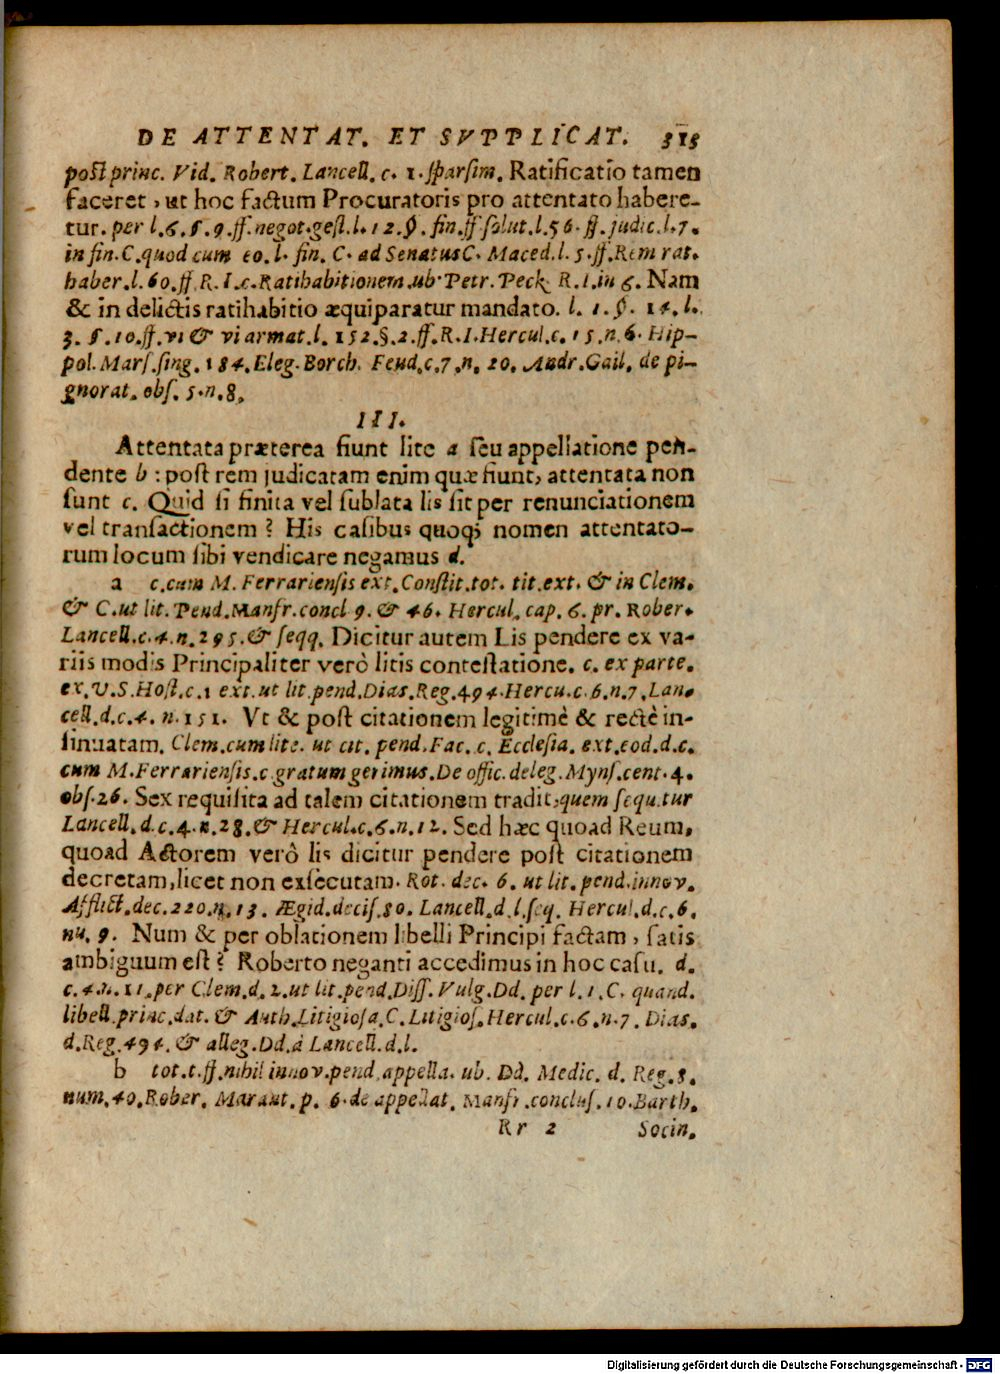 DE ATTENTAT. ET SVPPLICAT. 315
post princ. Vid. Robert. Lancell. c. 1. sparsim. Ratificatio tamen
faceret, ut hoc factum Procuratoris pro attentato habere-
tur. per l. 6. §. 9. ff. negot. gest. l. 12. §. fin. ff solut. l. 56. ff. judic. l. 7.
in fin. C. quod cum eo. l. fin. C. ad SenatusC. Maced. l. 5. ff. Rem rat.
haber. l. 60. ff. R. I. c. Ratihabitionem. ub. Petr. Peck R. I. in 6. Nam
& in delictis ratihabitio æquiparatur mandato. l. 1. §. 14. l.
3. §. 10. ff. vi & vi armat. l. 152. §. 2. ff. R. I. Hercul. c. 15. n. 6. Hip-
pol. Mars. sing. 184. Eleg. Borch. Feud. c. 7. n. 20. Andr. Gail. de pi-
gnorat. obs. 5. n. 8.
III.
Attentata præterea fiunt lite a seu appellatione pen-
dente b : post rem judicatam enim quæ fiunt, attentata non
sunt c. Quid si finita vel sublata lis sit per renunciationem
vel transactionem ? His casibus quoq; nomen attentato-
rum locum sibi vendicare negamus d.
a c. cum M. Ferrariensis ext. Constit. tot. tit. ext. & in Clem.
& C. ut lit. Pend. Manfr. concl 9. & 46. Hercul. cap. 6. pr. Rober.
Lancell. c. 4. n. 295. & seqq. Dicitur autem Lis pendere ex va-
riis modis Principaliter verò litis contestatione. c. ex parte.
ex. V. S. Host. c. 1 ext. ut lit. pend. Dias. Reg. 494. Hercu. c. 6. n. 7. Lan-
cell. d. c. 4. n. 151. Vt & post citationem legitimè & rectè in-
sinuatam. Clem. cum lite. ut cit. pend. Fac. c. Ecclesia. ext. eod. d. c.
cum M. Ferrariensis. c. gratum gerimus. De offic. deleg. Myns. cent. 4.
obs. 26. Sex requisita ad talem citationem tradit, quem sequitur
Lancell. d. c. 4. n. 28. & Hercul. c. 6. n. 12. Sed hæc quoad Reum,
quoad Actorem verò lis dicitur pendere post citationem
decretam, licet non exsecutam. Rot. dec. 6. ut lit. pend. innov.
Afflict. dec. 220. n. 13. Ægid. decis. 80. Lancell. d. l. seq. Hercul. d. c. 6.
nu. 9. Num & per oblationem libelli Principi factam, satis
ambiguum est ? Roberto neganti accedimus in hoc casu. d.
c. 4. n. 11. per Clem. d. 2. ut lit. pend. Diss. Vulg. Dd. per l. 1. C. quand.
libell. princ. dat. & Auth. Litigiosa. C. Litigios. Hercul. c. 6. n. 7. Dias.
d. Reg. 494. & alleg. Dd. à Lancell. d. l.
b tot. t. ff. nihil innov. pend. appella. ub. Dd. Medic. d. Reg. 8.
num. 40. Rober. Marant. p. 6. de appellat. Manfr. conclus. 10. Barth.
Rr 2 Socin.
Digitalisierung gefördert durch die Deutsche Forschungsgemeinschaft - DFG